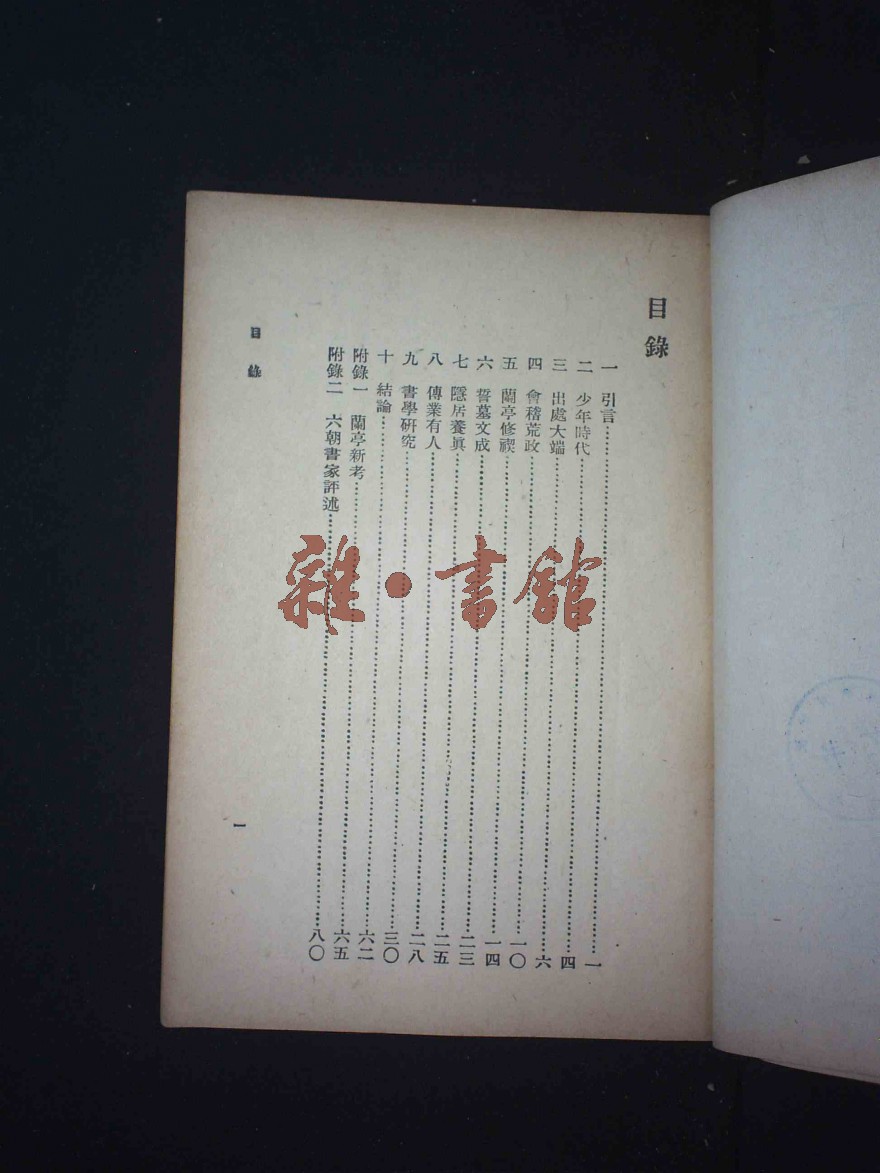 目錄
一　引言……一
二　少年時代……四
三　出處大端……六
四　會稽荒政……一〇
五　蘭亭修禊……一四
六　誓墓文成……二三
七　隱居養眞……二五
八　傳業有人……二八
九　書學研究……三〇
十　結論……六二
附錄一　蘭亭新考……六五
附錄二　六朝書家評述……八〇
目錄
一
雜·書館